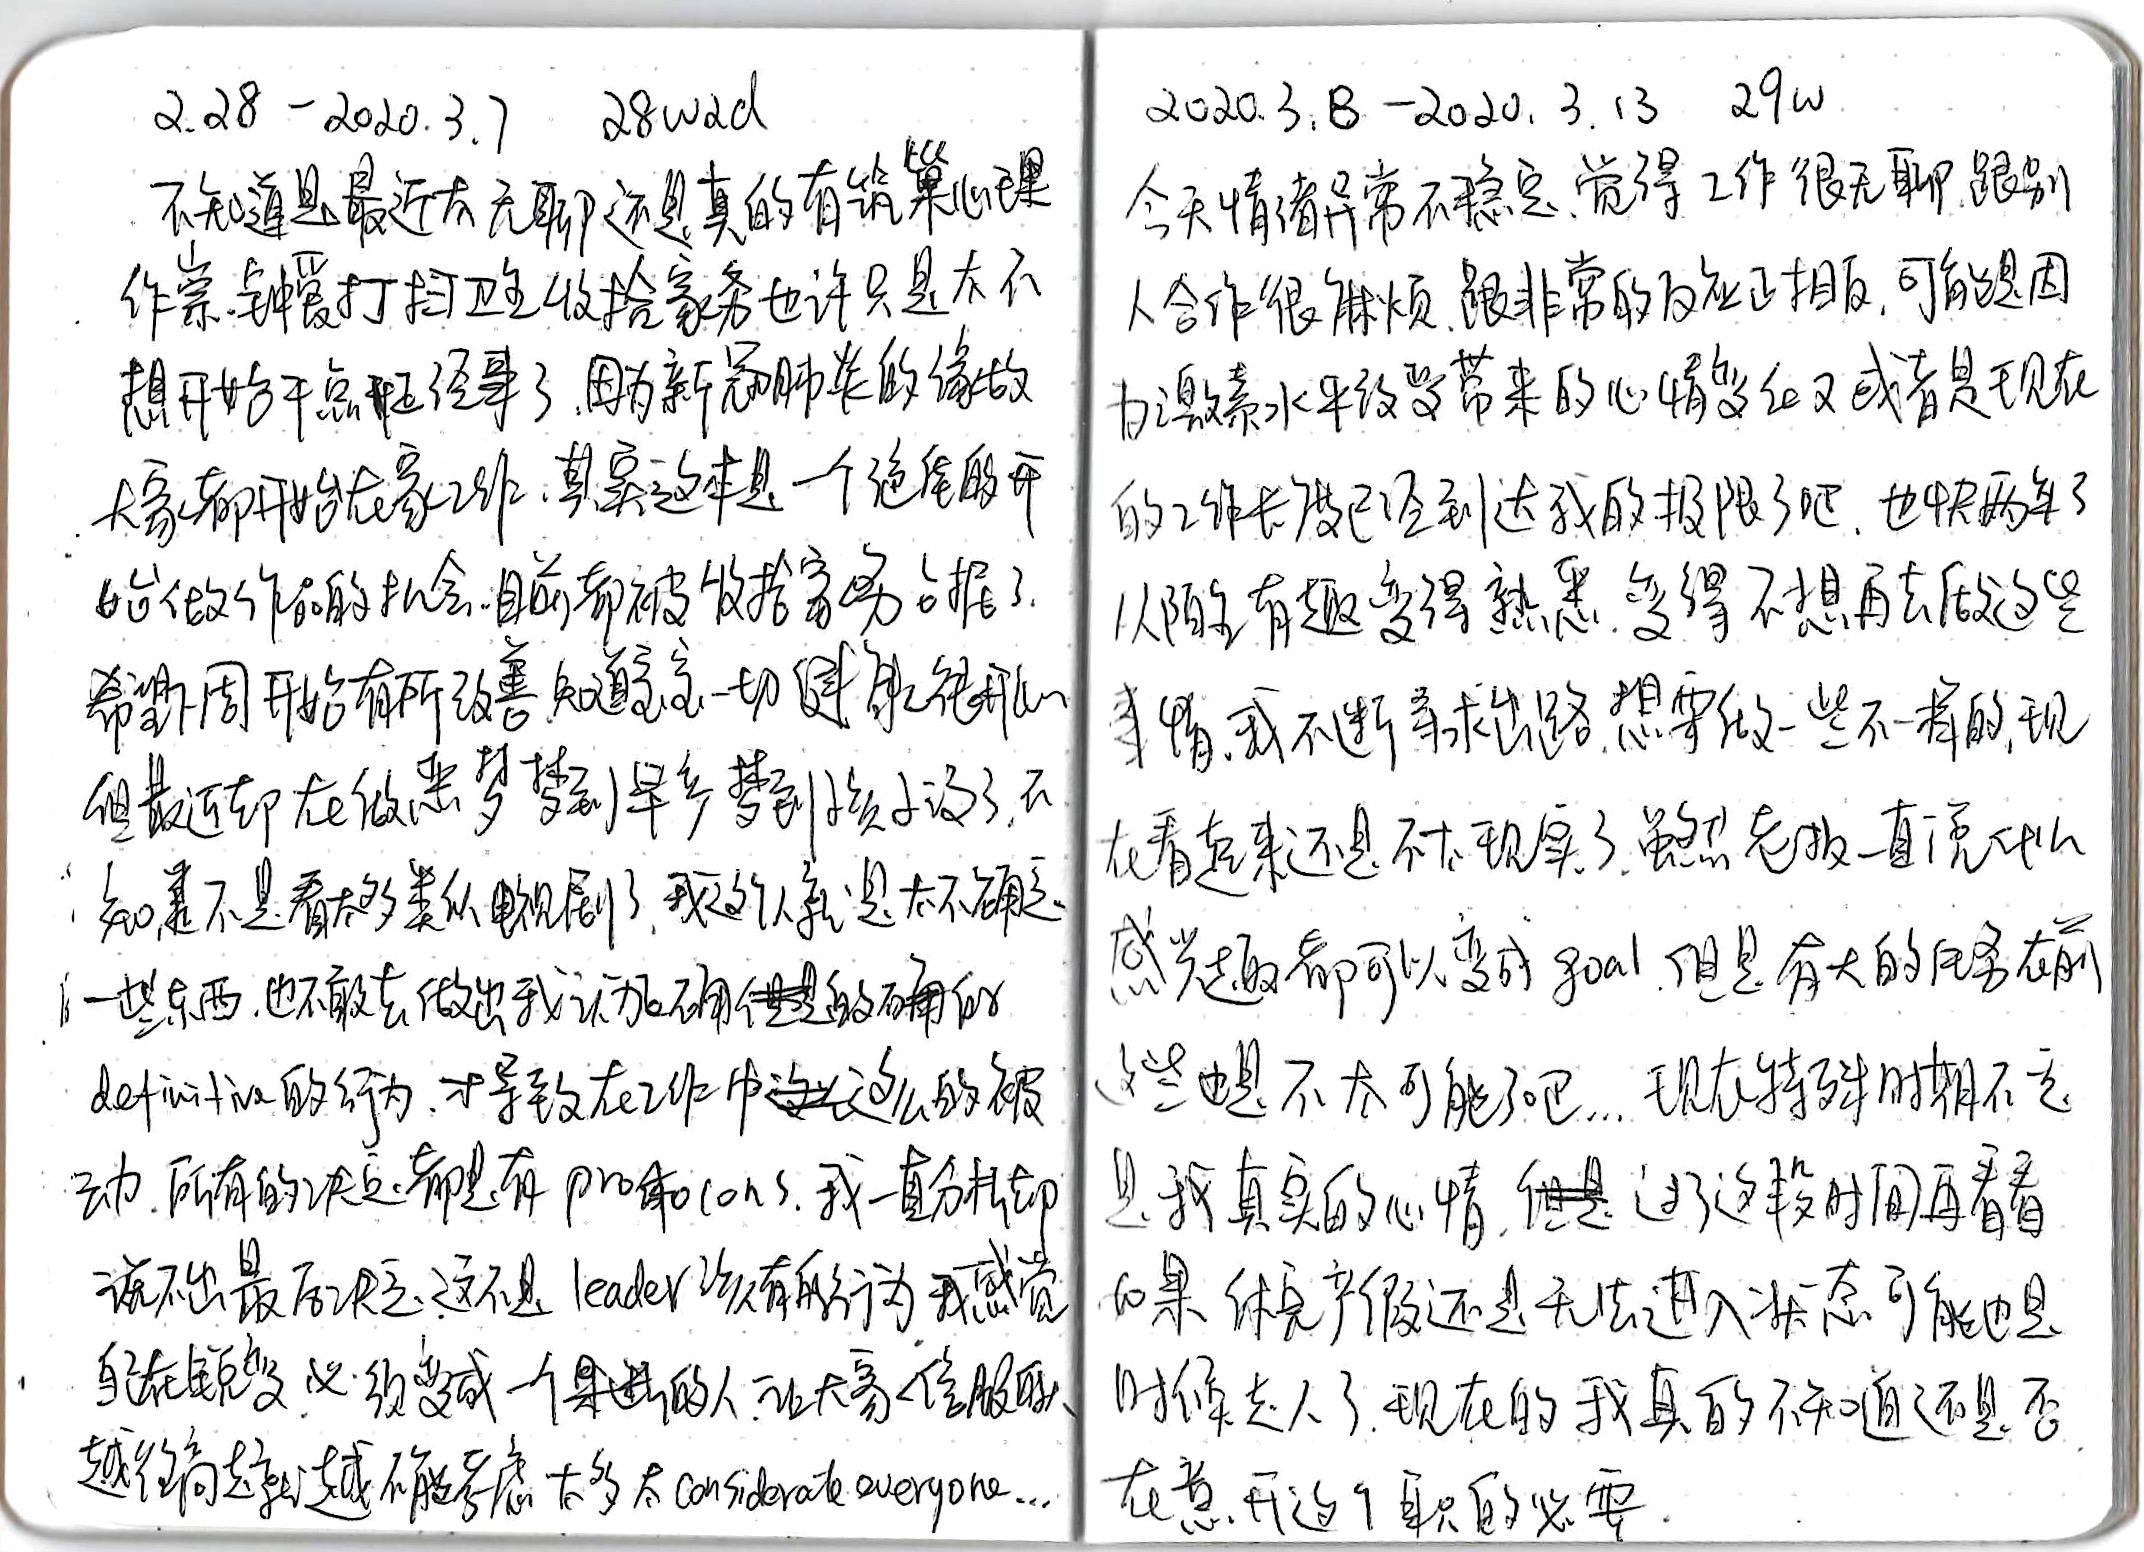 2.28 - 2020.3.7 28w2d
不知道是最近太无聊还是真的有筑巢心理
作祟.钟爱打扫卫生收拾家务也许只是太不
想开始干点正经事了.因为新冠肺炎的缘故
大家都开始在家工作.其实这本是一个绝佳的开
始做作品的机会.目前都被收拾家务占据了.
希望下周开始有所改善.知道宝宝一切健康很开心
但最近却在做恶梦梦到早产梦到孩子没了.不
知是不是看太多类似电视剧了.我这个人就是太不确定
一些东西.也不敢去做出我认为不确但是的确的
definitive的行为.才导致在工作中这么的被
动.所有的决定都是有pro和cons.我一直分析却
说不出最后决定.这不是leader该有的行为.我感觉
自己在蜕变.必须变成一个果断的人.让大家信服的人
越往高走就越不能考虑太多太considerate everyone...
2020.3.8 - 2020.3.13 29w
今天情绪异常不稳定.觉得工作很无聊.跟别
人合作很麻烦.跟非常的反应正相反.可能是因
为激素水平改变带来的心情变化又或者是现在
的工作长度已经到达我的极限了吧.也快两年了
从陌生有趣变得熟悉.变得不想再去做这些
事情.我不断寻求出路.想要做一些不一样的,现
在看起来还是不太现实了.虽然老板一直说什么
感兴趣都可以变成goal.但是有大的任务在前
这些也是不太可能了吧...现在特殊时期不一定
是我真实的心情.但是过了这段时间再看看
如果休完产假还是无法进入状态可能也是
时候走人了.现在的我真的不知道还是否
在意升这个职的必要.